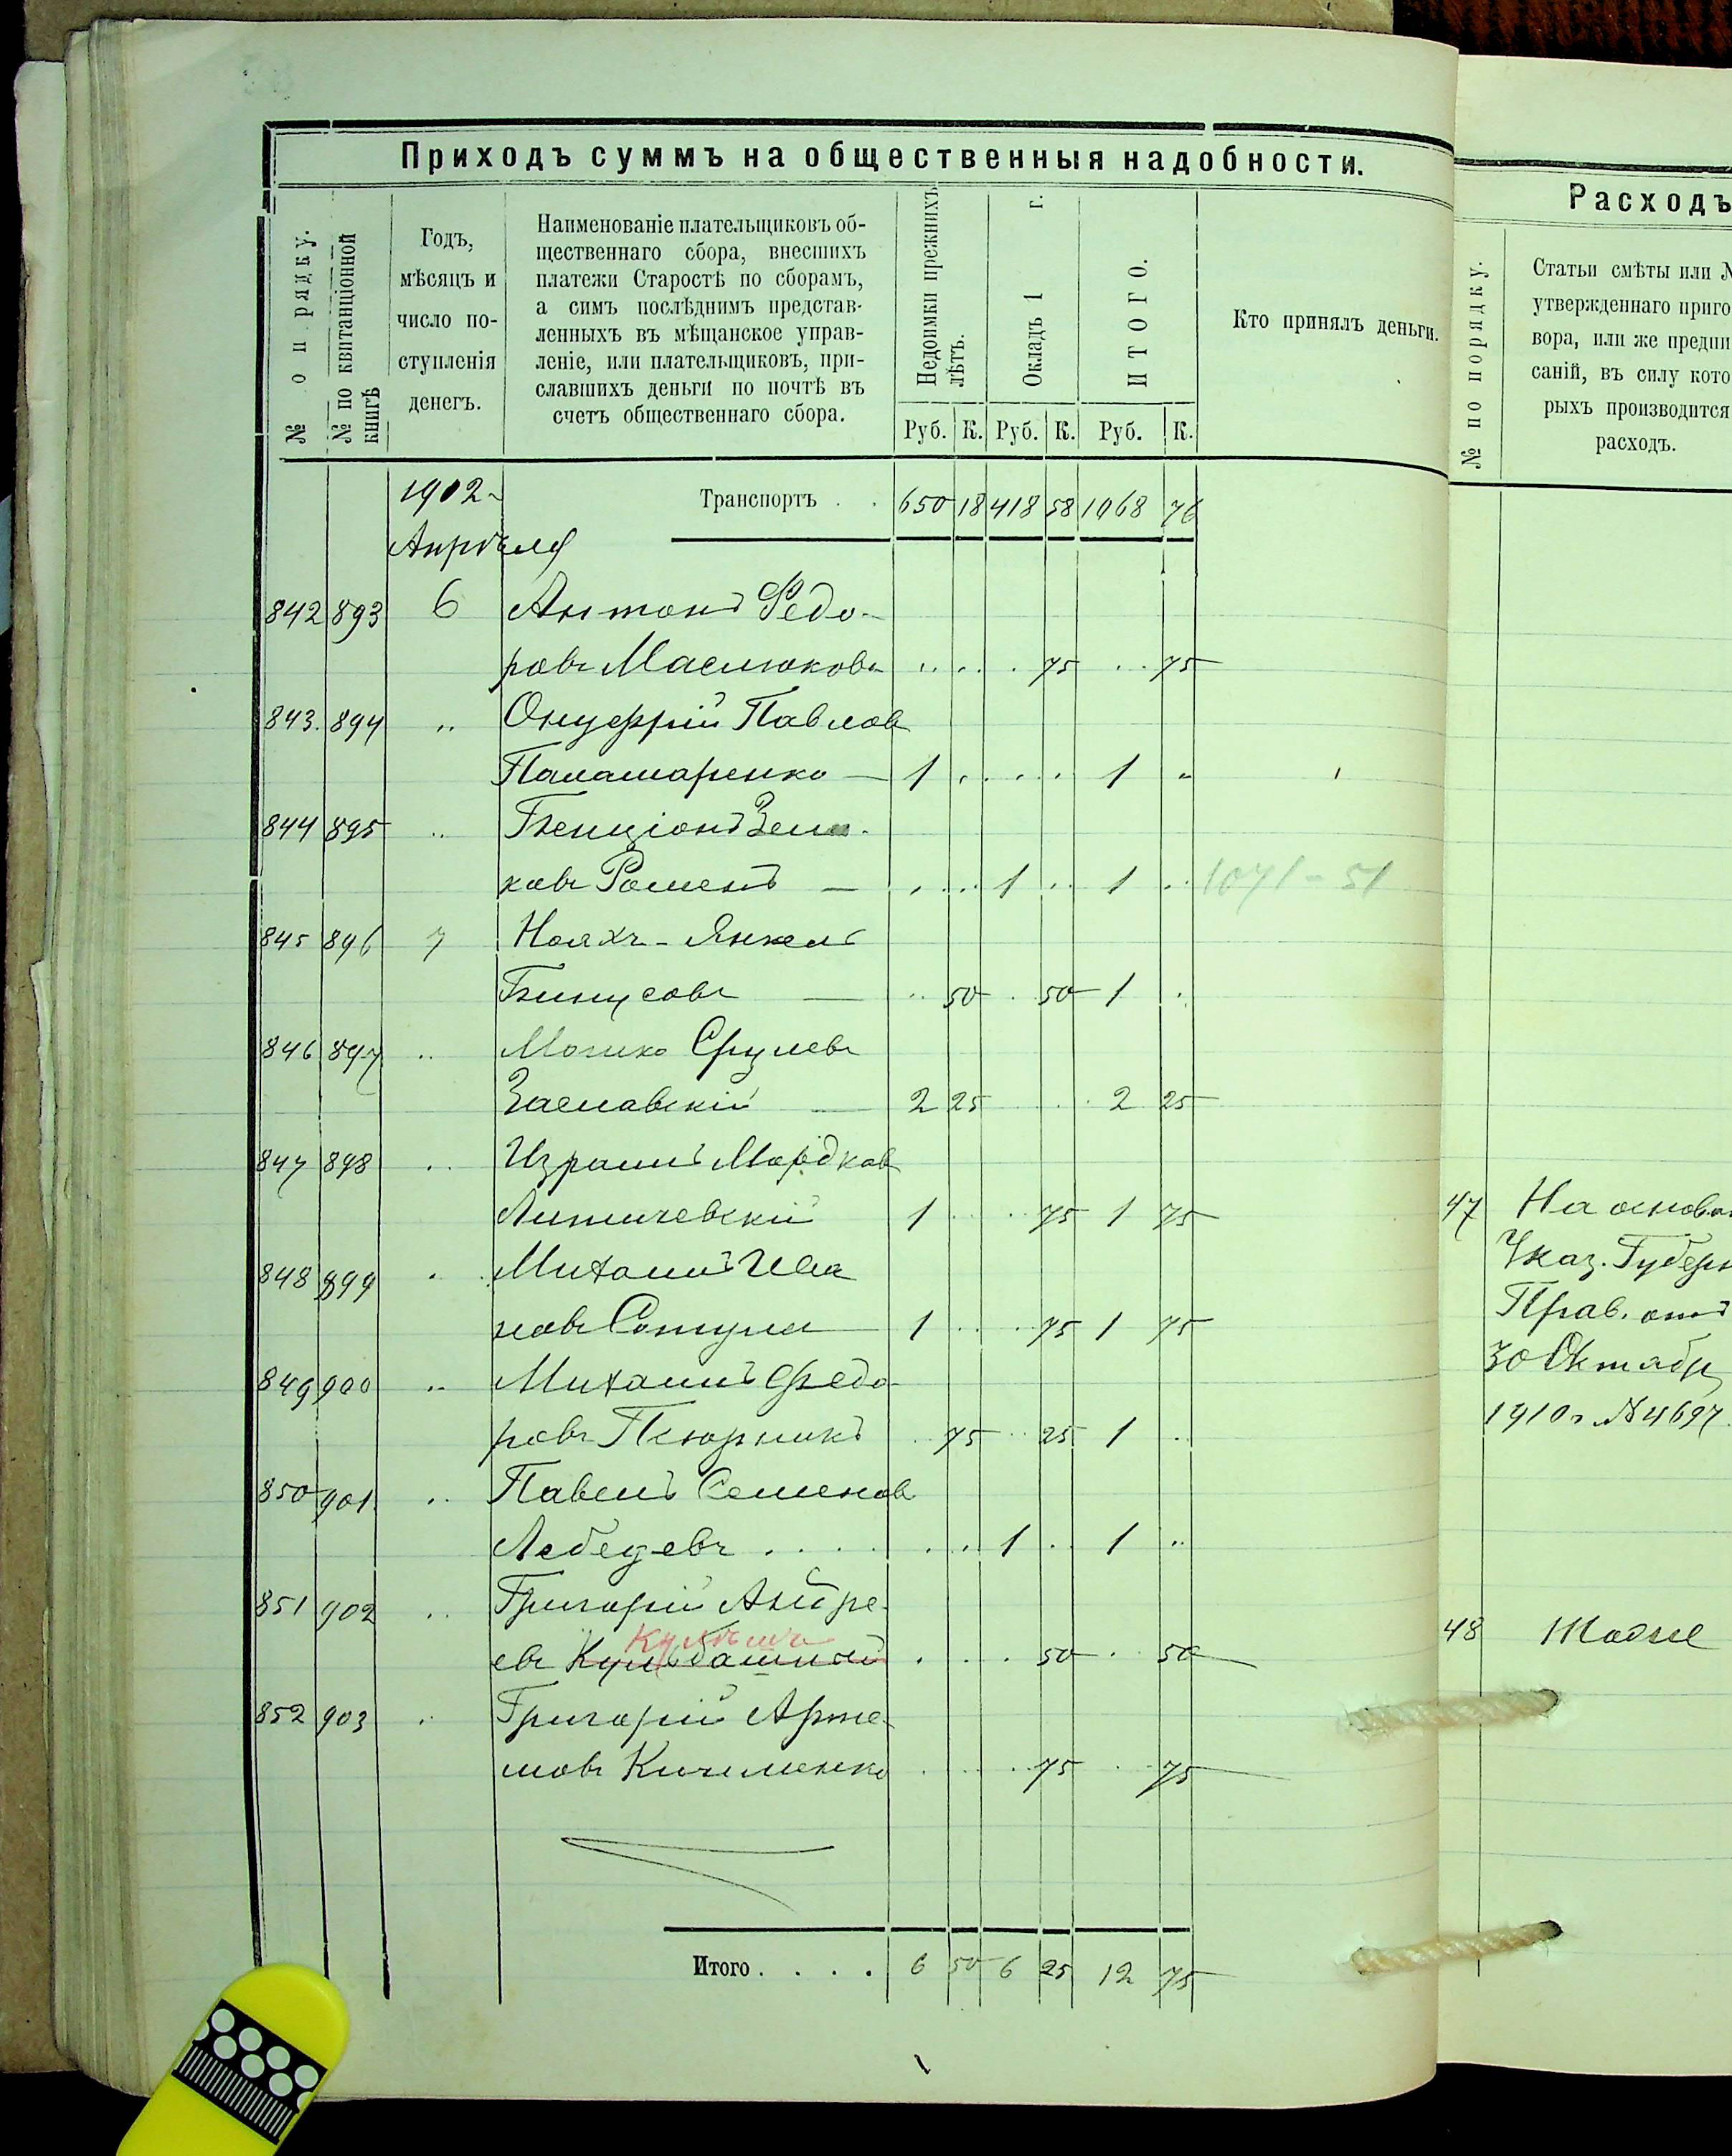 Приходъ суммъ на общественныя надобности.
№ по рядку.
№ по квитанціонной книгѣ
Годъ, мѣсяцъ и число поступленія денегъ.
Наименованіе плательщиковъ об-
щественнаго сбора, внесшихъ
платежи Старостѣ по сборамъ,
а симъ послѣднимъ представ-
ленныхъ въ мѣщанское управ-
леніе, или плательщиковъ, при-
славшихъ деньги по почтѣ въ
счетъ общественнаго сбора.
Недоимки прежнихъ лѣтъ.
Окладъ 1 г.
ИТОГО.
Кто принялъ деньги.
Руб. К. Руб. К. Руб. К.
1902 Транспортъ . . 650 18 418 58 1068 76
Апрѣля
842 893 6 Антонъ Ѳедо-
ровъ Маслюковъ 75 75
843. 894 " Онуфрій Павлов
Паламаренко — 1 1
844 895 " Бенціонъ Зель-
ковъ Роменъ — 1 1 1071-51
845 896 7 Ноахъ-Янкель
Бинусовъ — 50 50 1
846 897 " Мошко Срулевъ
Заславскій — 2 25 2 25
847 898 " Израиль Мордков
Литичевскій 1 75 1 75
848 899 " Михаилъ Ива
новъ Сотула 1 75 1 75
849 900 " Михаилъ Федо-
ровъ Псюрникъ 75 25 1
850 901. " Павелъ Семенов
Лебедевъ . . . . 1 1
851 902 " Григорій Андре-
евъ 50 50
852 903 " Григорій Арте-
мовъ Кичименко 75 75
Итого . . . . 6 50 6 25 12 75
Расходъ
№ по порядку.
Статьи смѣты или №
утвержденнаго приго
вора, или же предпи
саній, въ силу кото
рыхъ производится
расходъ.
47 На основа
Указ. Губерн
Прав. отъ
30 Октябр
1910 г. № 4697.
48 Тоже